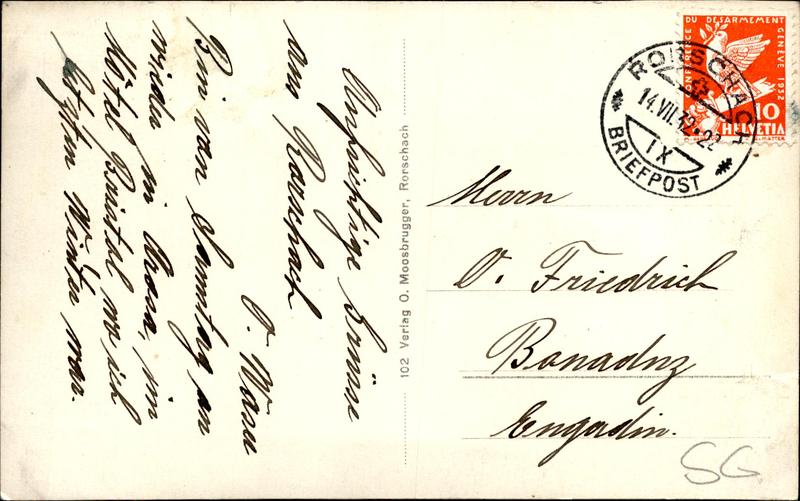 Aufrichtige Grüsse
aus Rorschach
O. Wanu
Bin von Samstag an
wieder in Arosa, im
Hôtel Bristol wo ich
letzten Winter war.
102 Verlag O. Moosbrugger, Rorschach
CONFERENCE DU DESARMEMENT GENEVE 1932
10
HELVETIA
RORSCHACH
14.VII.32-22
IX
BRIEFPOST
Herrn
O. Friedrich
Bonaduz
Engadin.
SG